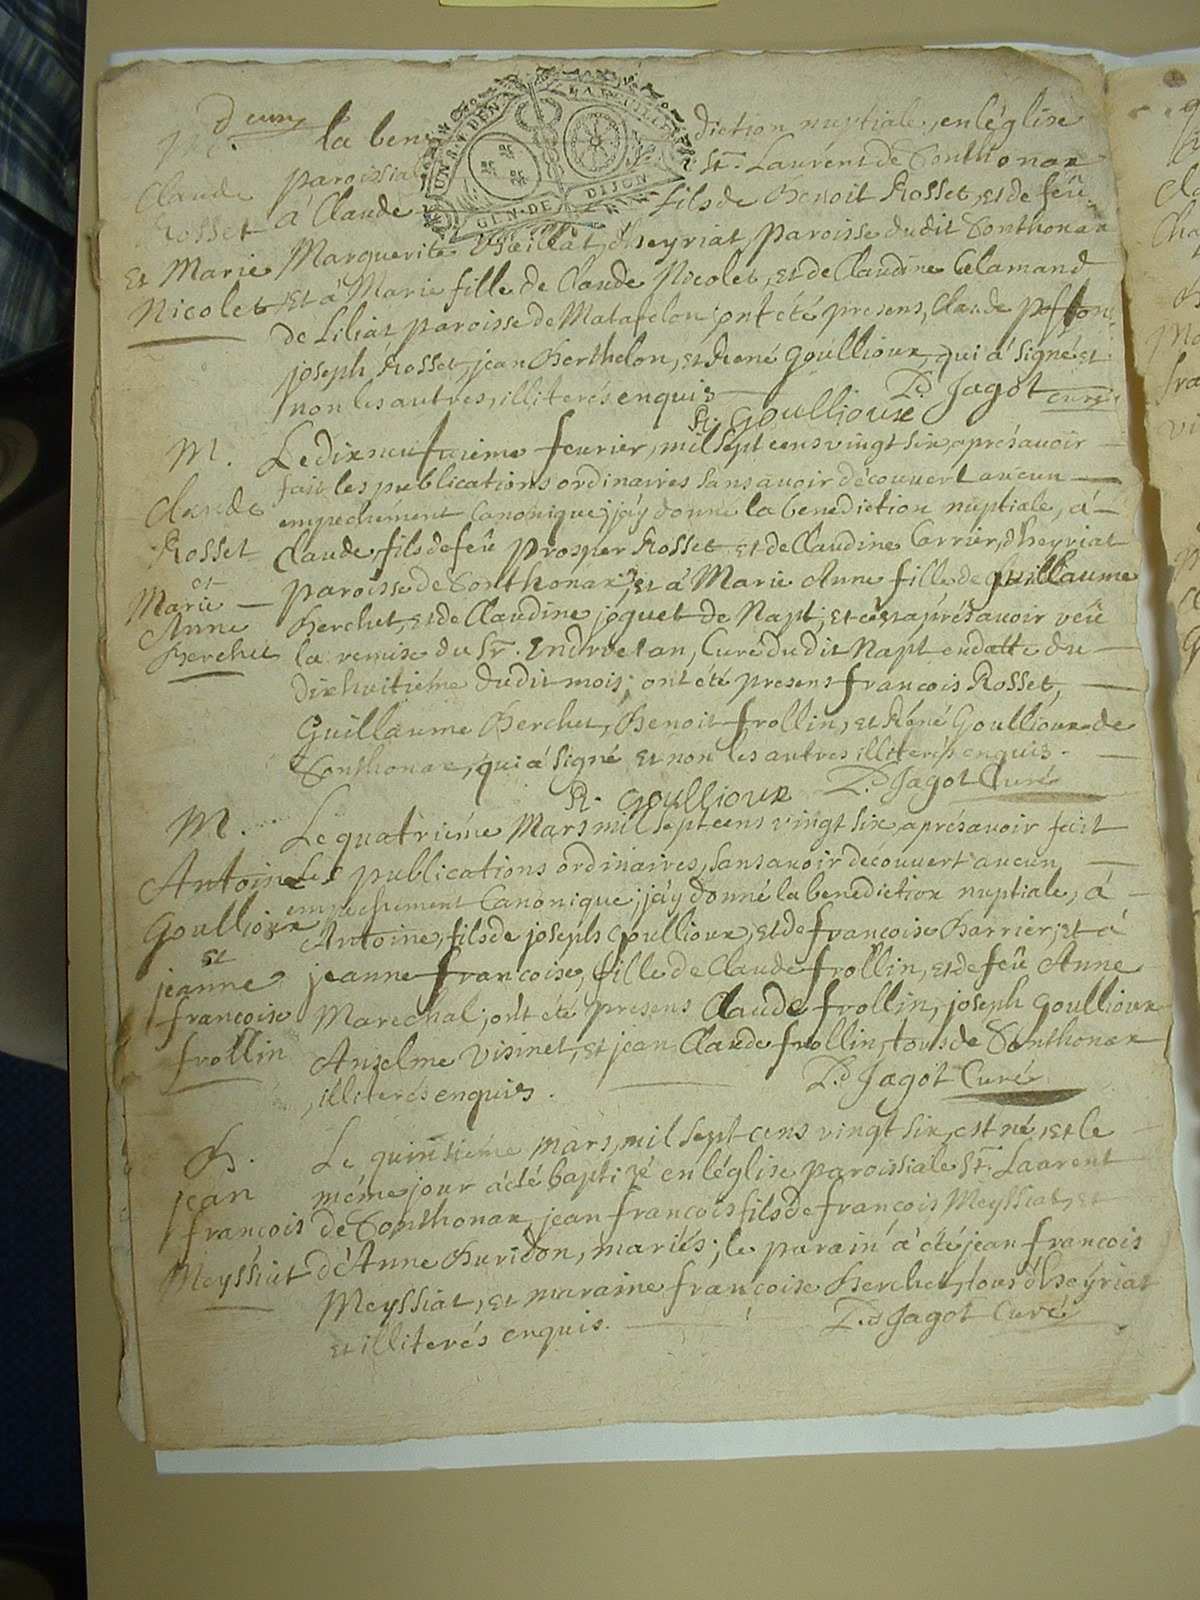 M. d'eux la benediction nuptiale, en léglise
Claude paroissiale St. Laurent de Sonthonax
Rosset á Claude fils de Benoit Rosset, et de feüe
UN S. & 4 DEN. LA FEUILLE
GEN. DE DIJON
et Marie Marguerite Vieillat, d'heyriat, paroisse dudit Sonthonax
Nicolet et á Marie fille de Claude Nicolet, et de Claudine Calamand
de Liliat paroisse de Matafelon; ont été presens, Claude
joseph Rosset, jean Berthelon, et René Goullioux, qui á signé et
non les autres, illiterés enquis P.d Jagot curé
R. Goullioux
M. Le dix neufvième fevrier, mil sept cens vingt six, aprés avoir
fait les publications ordinaires sans avoir découvert aucun
Claude empechement Canonique; j'ay donné la benediction nuptiale, á
Rosset Claude, fils de feü Prosper Rosset et de Claudine Carrier, d'heyriat
et
Marie paroisse de Sonthonax; et á Marie Anne fille de guillaume
Anne Berchet, et de Claudine joguet de Napt; et ce aprés avoir veü
Berchet la remise du Sr. Endruetan, Curé dudit Napt en datte du
dixhuitiéme dudit mois; ont été presens françois Rosset,
Guillaume Berchet, Benoit frollin, et Réné Goullioux de
Sonthonax, qui á signé et non les autres illiterés enquis.
R. Goullioux P.d Jagot Curé
M. Le quatriéme Mars mil sept cens vingt six, aprés avoir fait
Antoine les publications ordinaires, sans avoir découvert aucun
Goullioux empechement Canonique; j'ay donné la benediction nuptiale, á
et Antoine, fils de joseph Goullioux, et de françoise Barrier, et á
jeanne jeanne françoise, fille de Claude frollin, et de feüe Anne
françoise Marechal; ont été presens Claude frollin, joseph Goullioux
frollin Anselme Visinet, et jean Claude frollin, tous de Sonthonax
illiterés enquis. P.d Jagot Curé
B. Le quinsiéme mars, mil sept cens vingt six, est né, et le
jean méme jour á été baptizé en léglise paroissiale St. Laurent
françois de Sonthonax, jean françois fils de françois Meyssiat, et
Meyssiat d'Anne Buridon, mariés; le parain á été jean françois
Meyssiat, et maraine françoise Berchet, tous d'heyriat
et illiterés enquis. P.d Jagot Curé